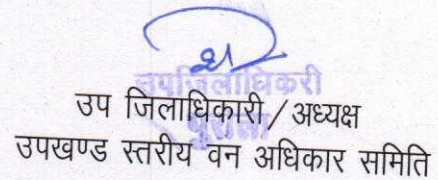 उपजिलाधिकरी
उप जिलाधिकारी / अध्यक्ष
उपखण्ड स्तरीय वन अधिकार समिति